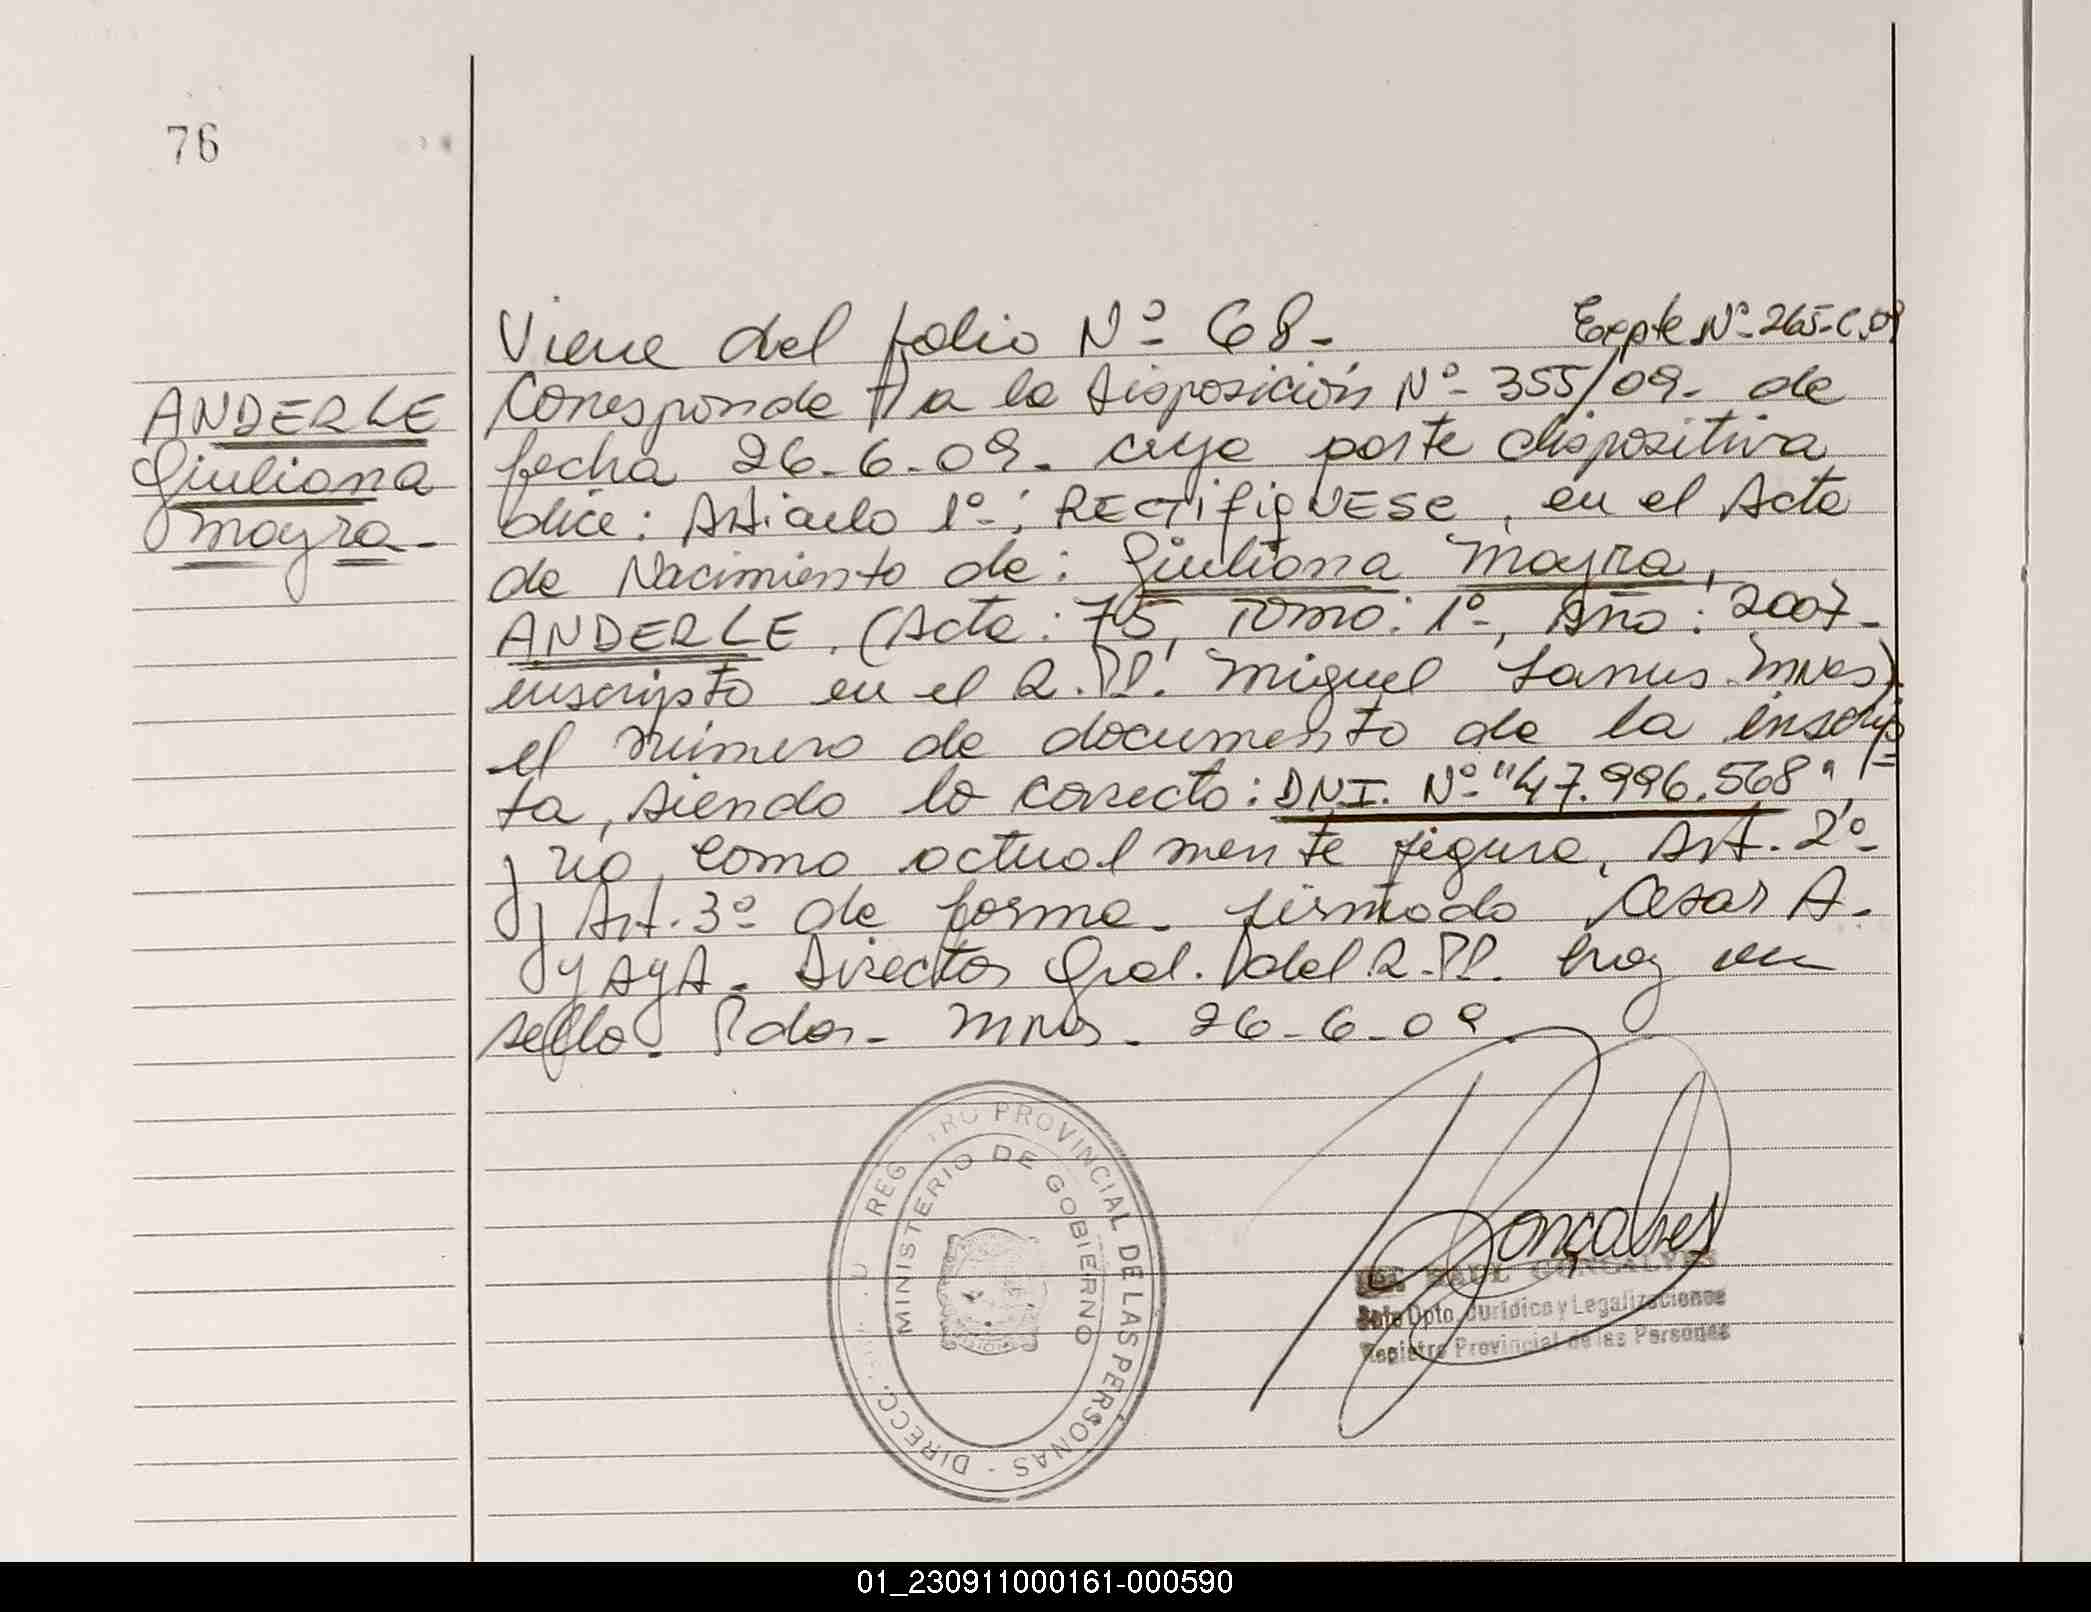 76
Viene del folio Nº 68-
Expte Nº 265-C.09
ANDERLE
Giuliana
Mayra-
Corresponde a la Disposición Nº 355/09- de
fecha 26-6-09- cuya parte dispositiva
dice: Articulo 1º: RECTIFIQUESE, en el Acta
de Nacimiento de: Giuliana Mayra,
ANDERLE, (Acta: 75, Tomo: 1º, Año: 2007-
inscripto en el R.PP. Miguel Lanus-Mnes)
el número de documento de la inscrip
ta, siendo lo correcto: DNI. Nº "47.996.568",
y no como actualmente figura, Art. 2º
y Art. 3º de forma- firmado Cesar A.
AYAYA- Director Gral. del R.PP. hay un
sello- Pdas- Mnes- 26-6-09
REG TRO PROVINCIAL DE LAS PERSONAS - DIRECC
MINISTERIO DE GOBIERNO
Gonçalves
RAUL GONCALVES
Jefe Dpto. Jurídico y Legalizaciones
Registro Provincial de las Personas
01_230911000161-000590